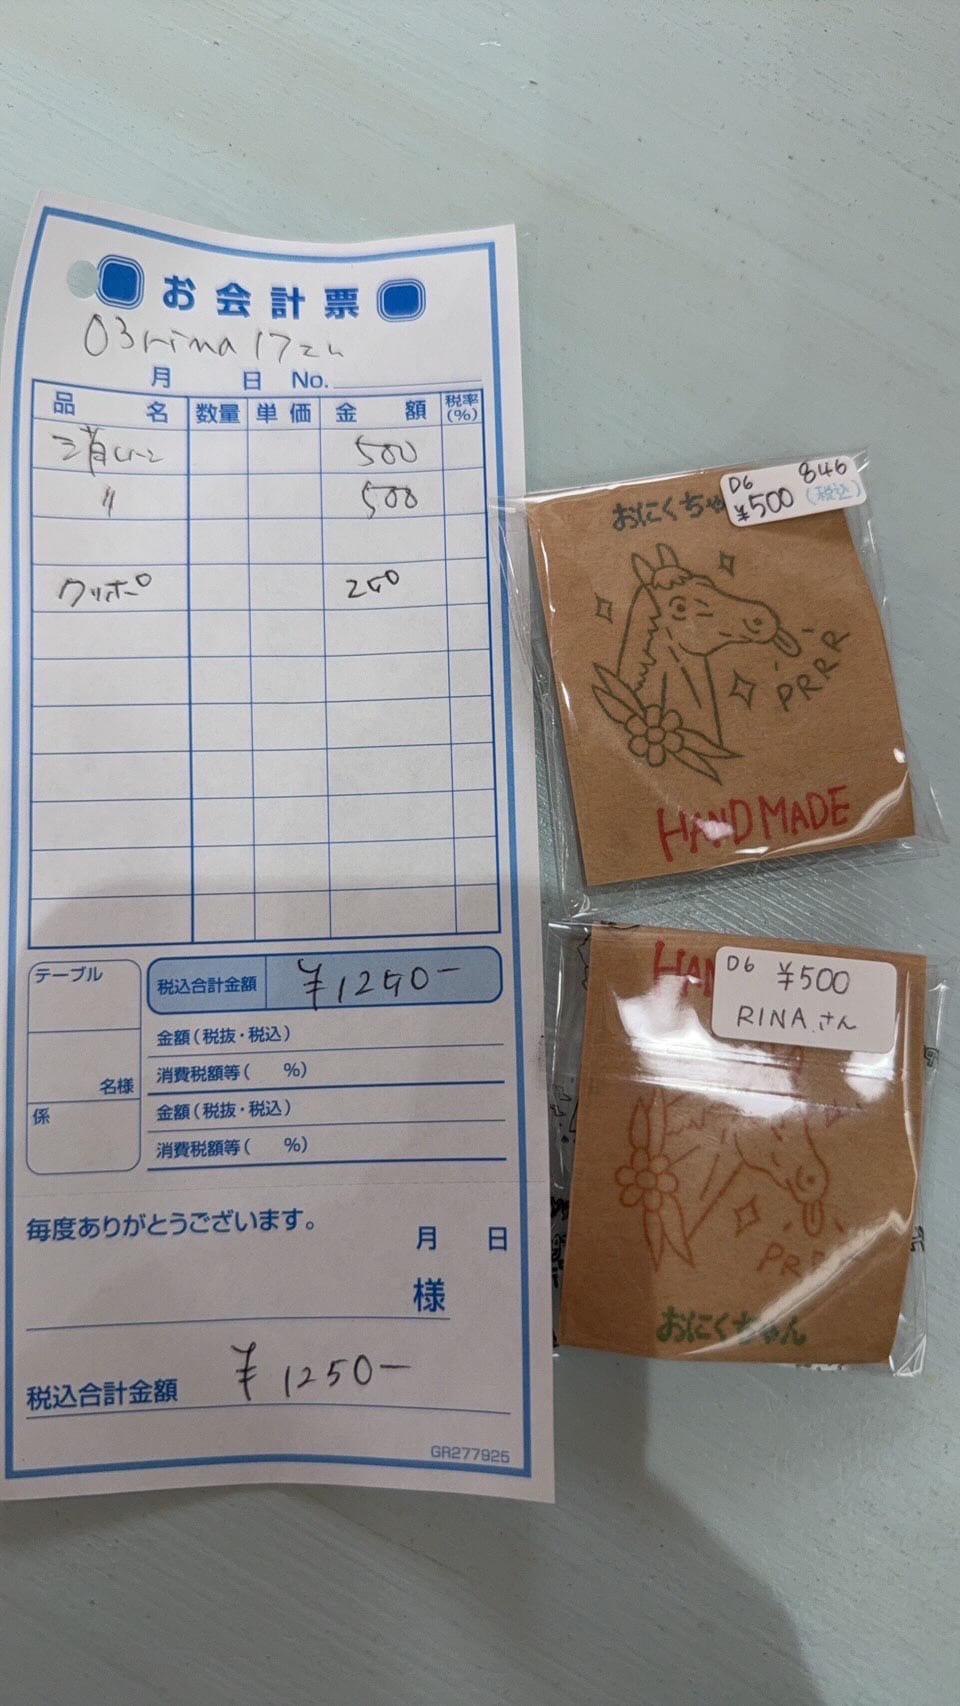 お会計票
03rina17さん
月 日 No.
品名 数量 単価 金額 税率(%)
500
〃 500
クリポ 250
テーブル
名様
係
税込合計金額 ¥1250-
金額(税抜・税込)
消費税額等( %)
金額(税抜・税込)
消費税額等( %)
毎度ありがとうございます。
月 日
様
税込合計金額 ¥1250-
GR277925
D6 846
¥500 (税込)
おにくちゃ
PRRR
HANDMADE
HAN
D6 ¥500
RINA さん
PR
おにくちゃん